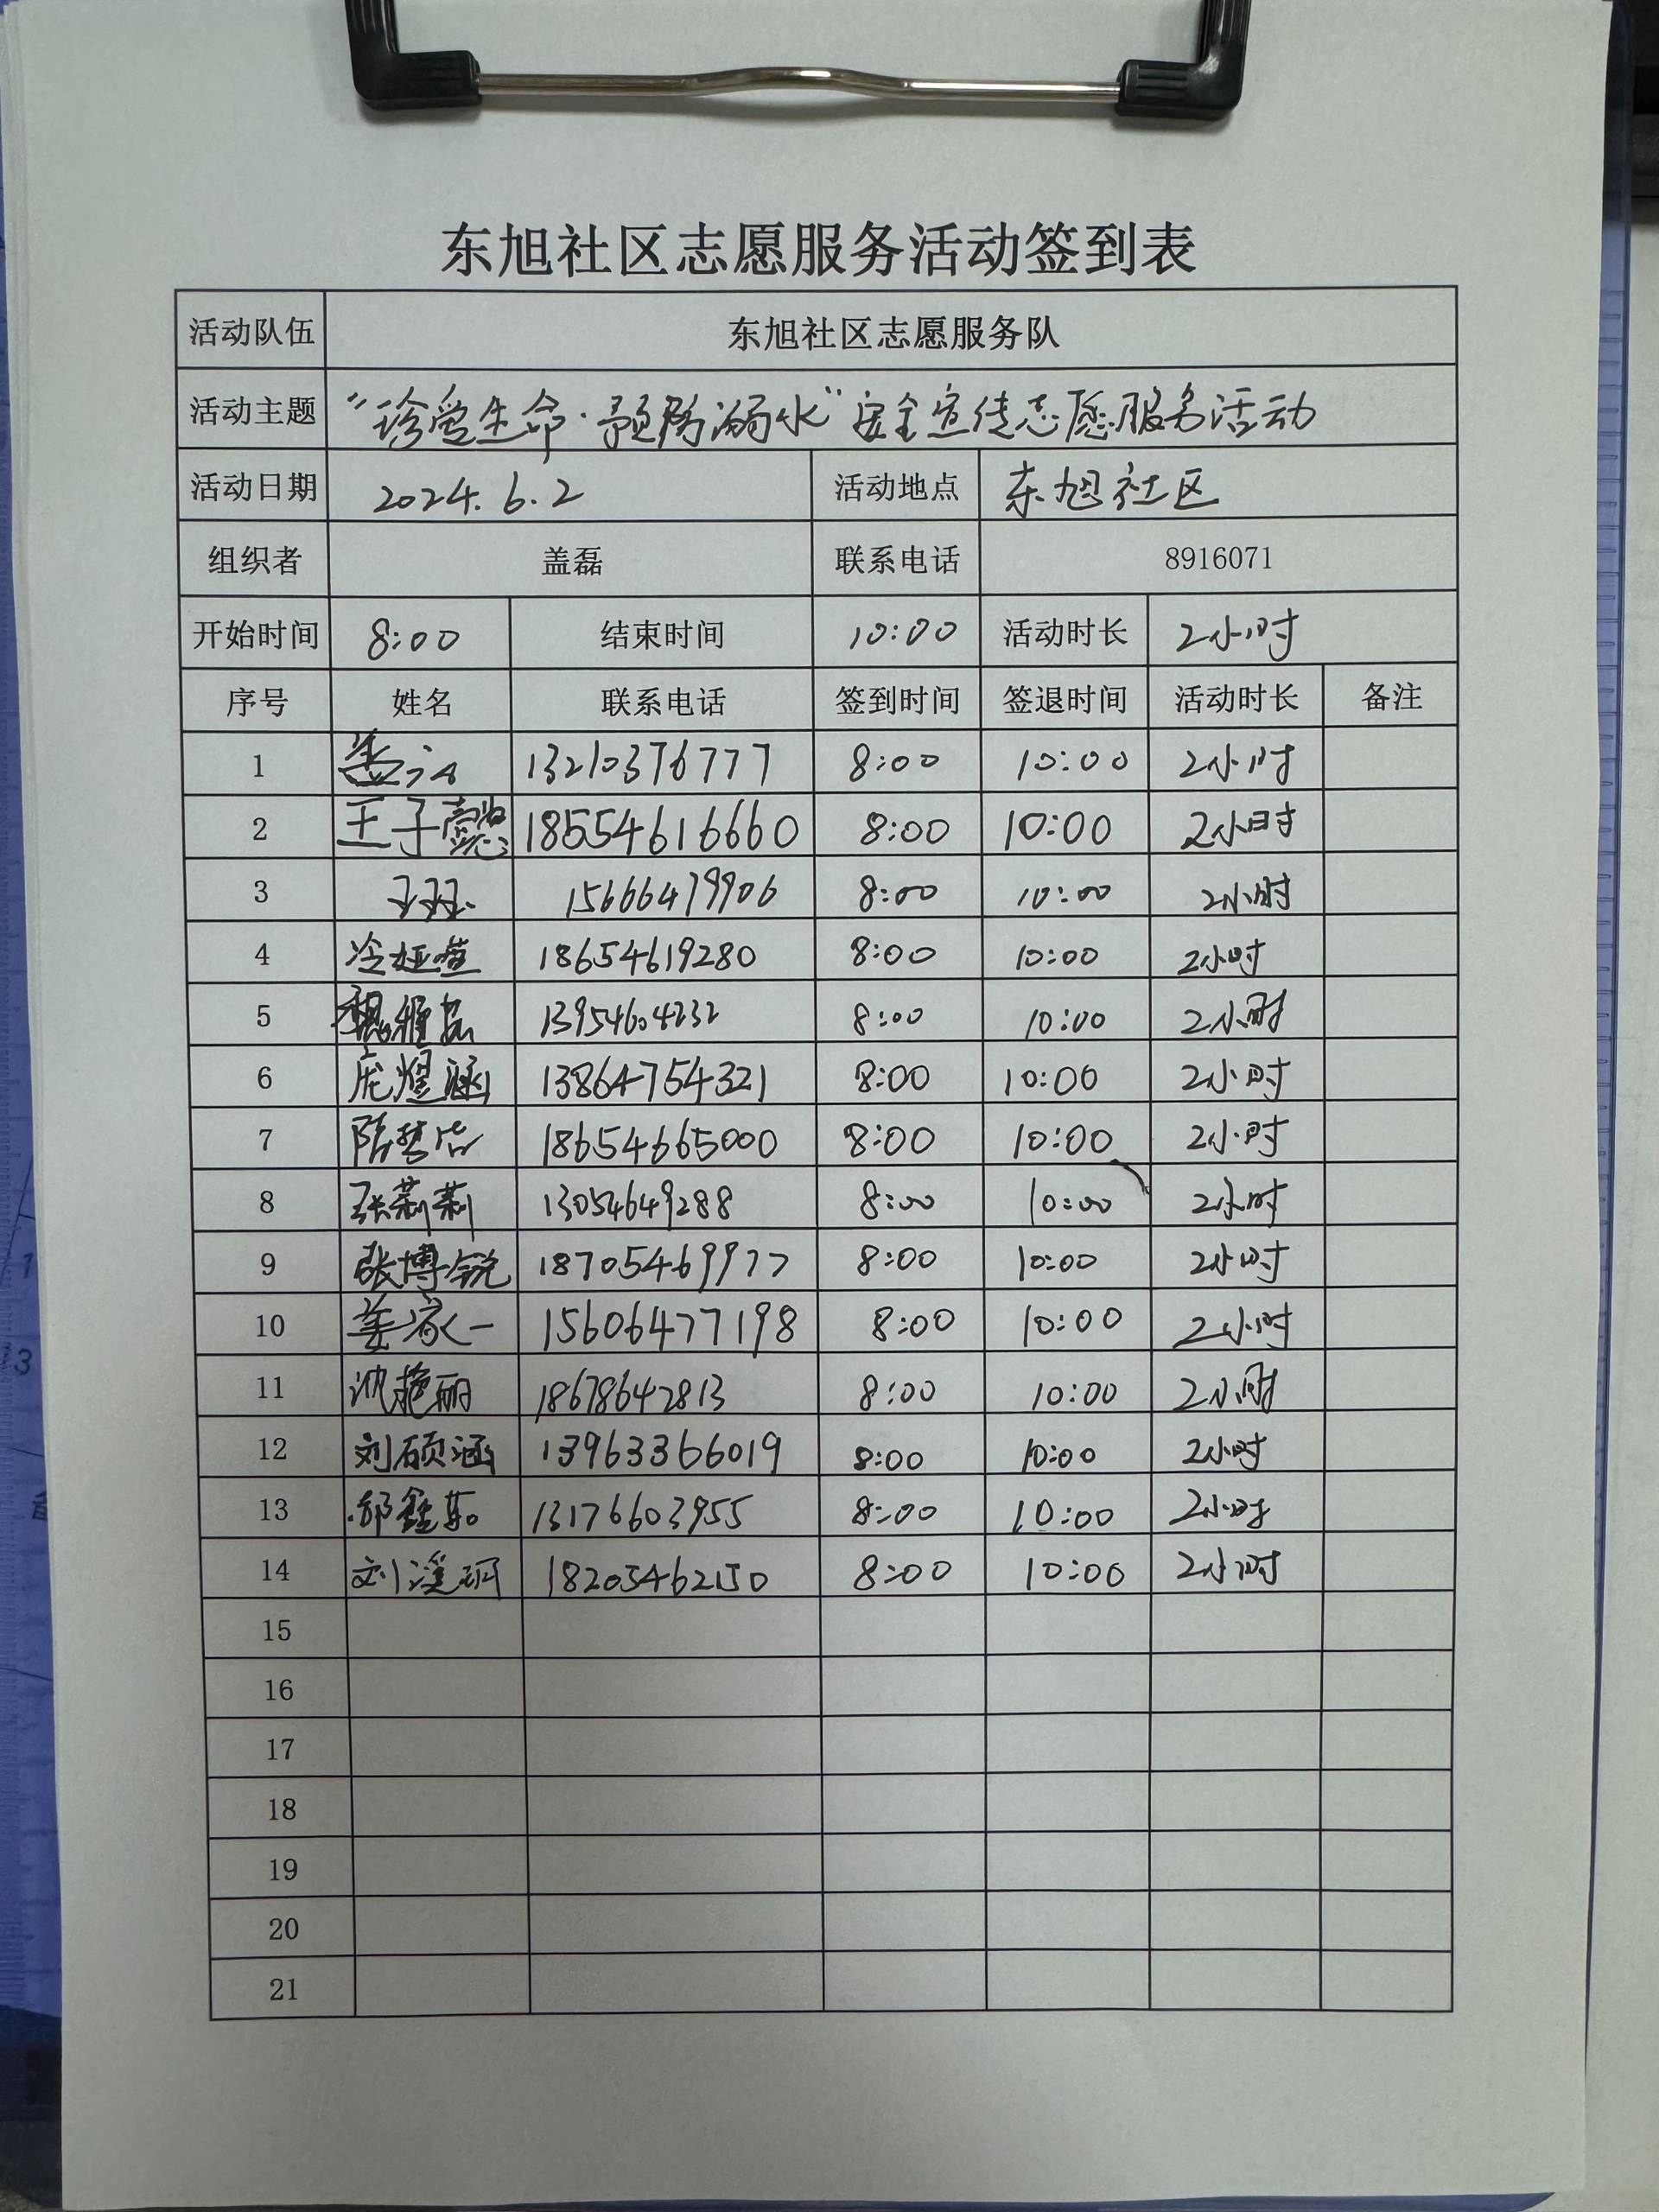 东旭社区志愿服务活动签到表
活动队伍 东旭社区志愿服务队
活动主题 “珍爱生命·预防溺水”安全宣传志愿服务活动
活动日期 2024.6.2 活动地点 东旭社区
组织者 盖磊 联系电话 8916071
开始时间 8:00 结束时间 10:00 活动时长 2小时
序号 姓名 联系电话 签到时间 签退时间 活动时长 备注
1 13210376777 8:00 10:00 2小时
2 王子懿 18554616660 8:00 10:00 2小时
3 15666479906 8:00 10:00 2小时
4 冷娅萱 18654619280 8:00 10:00 2小时
5 13954604232 8:00 10:00 2小时
6 庞煜涵 13864754321 8:00 10:00 2小时
7 18654665000 8:00 10:00 2小时
8 张莉莉 13054649288 8:00 10:00 2小时
9 张博锐 18705469977 8:00 10:00 2小时
10 15606477198 8:00 10:00 2小时
11 沈艳丽 18678642813 8:00 10:00 2小时
12 刘硕涵 13963366019 8:00 10:00 2小时
13 13176603955 8:00 10:00 2小时
14 刘溪珂 18205462150 8:00 10:00 2小时
15
16
17
18
19
20
21